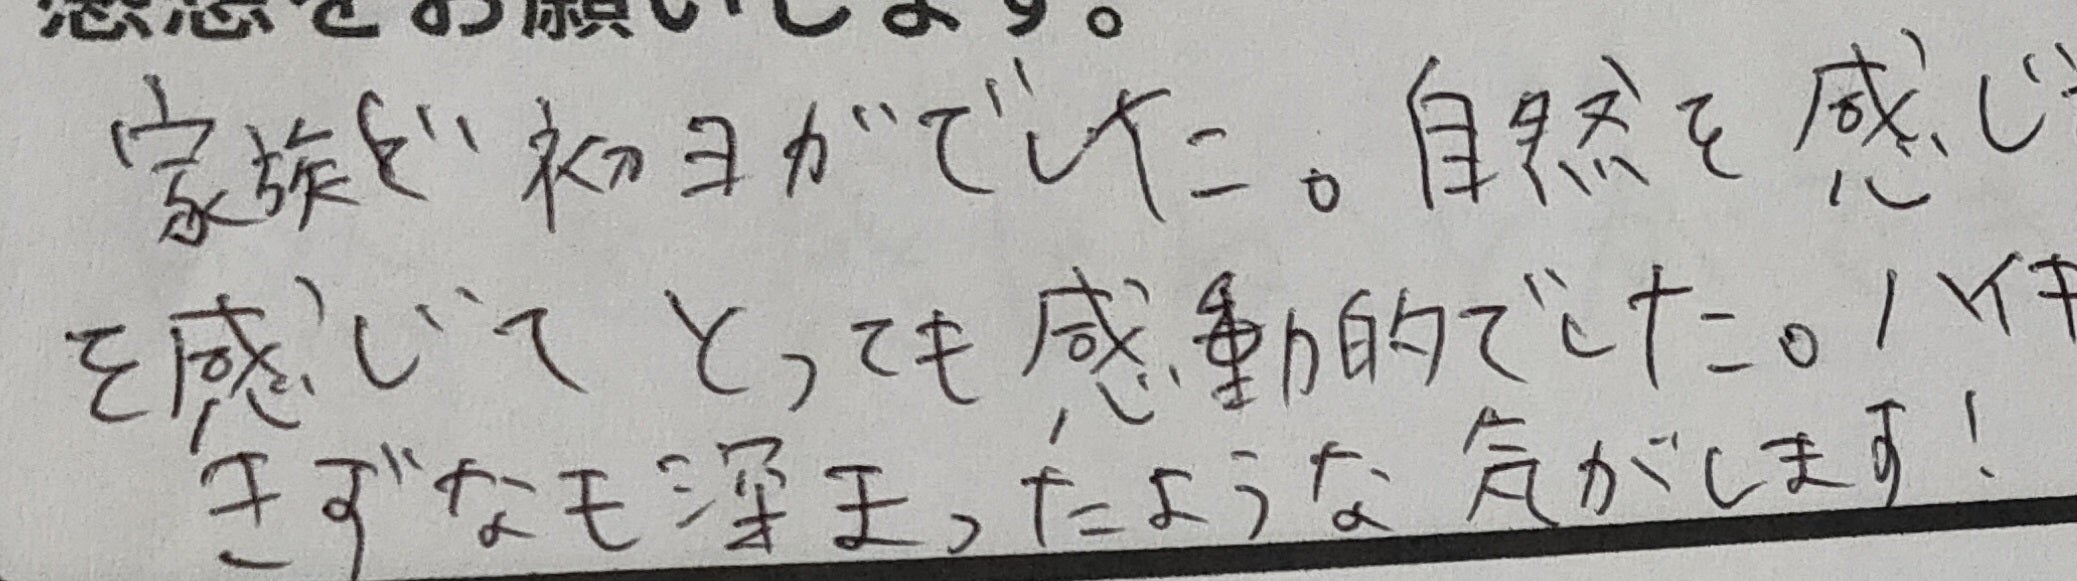 感想をお願いします。
家族で初ヨガでした。自然を感じ
を感じてとっても感動的でした。ハイキ
きずなも深まったような気がします!